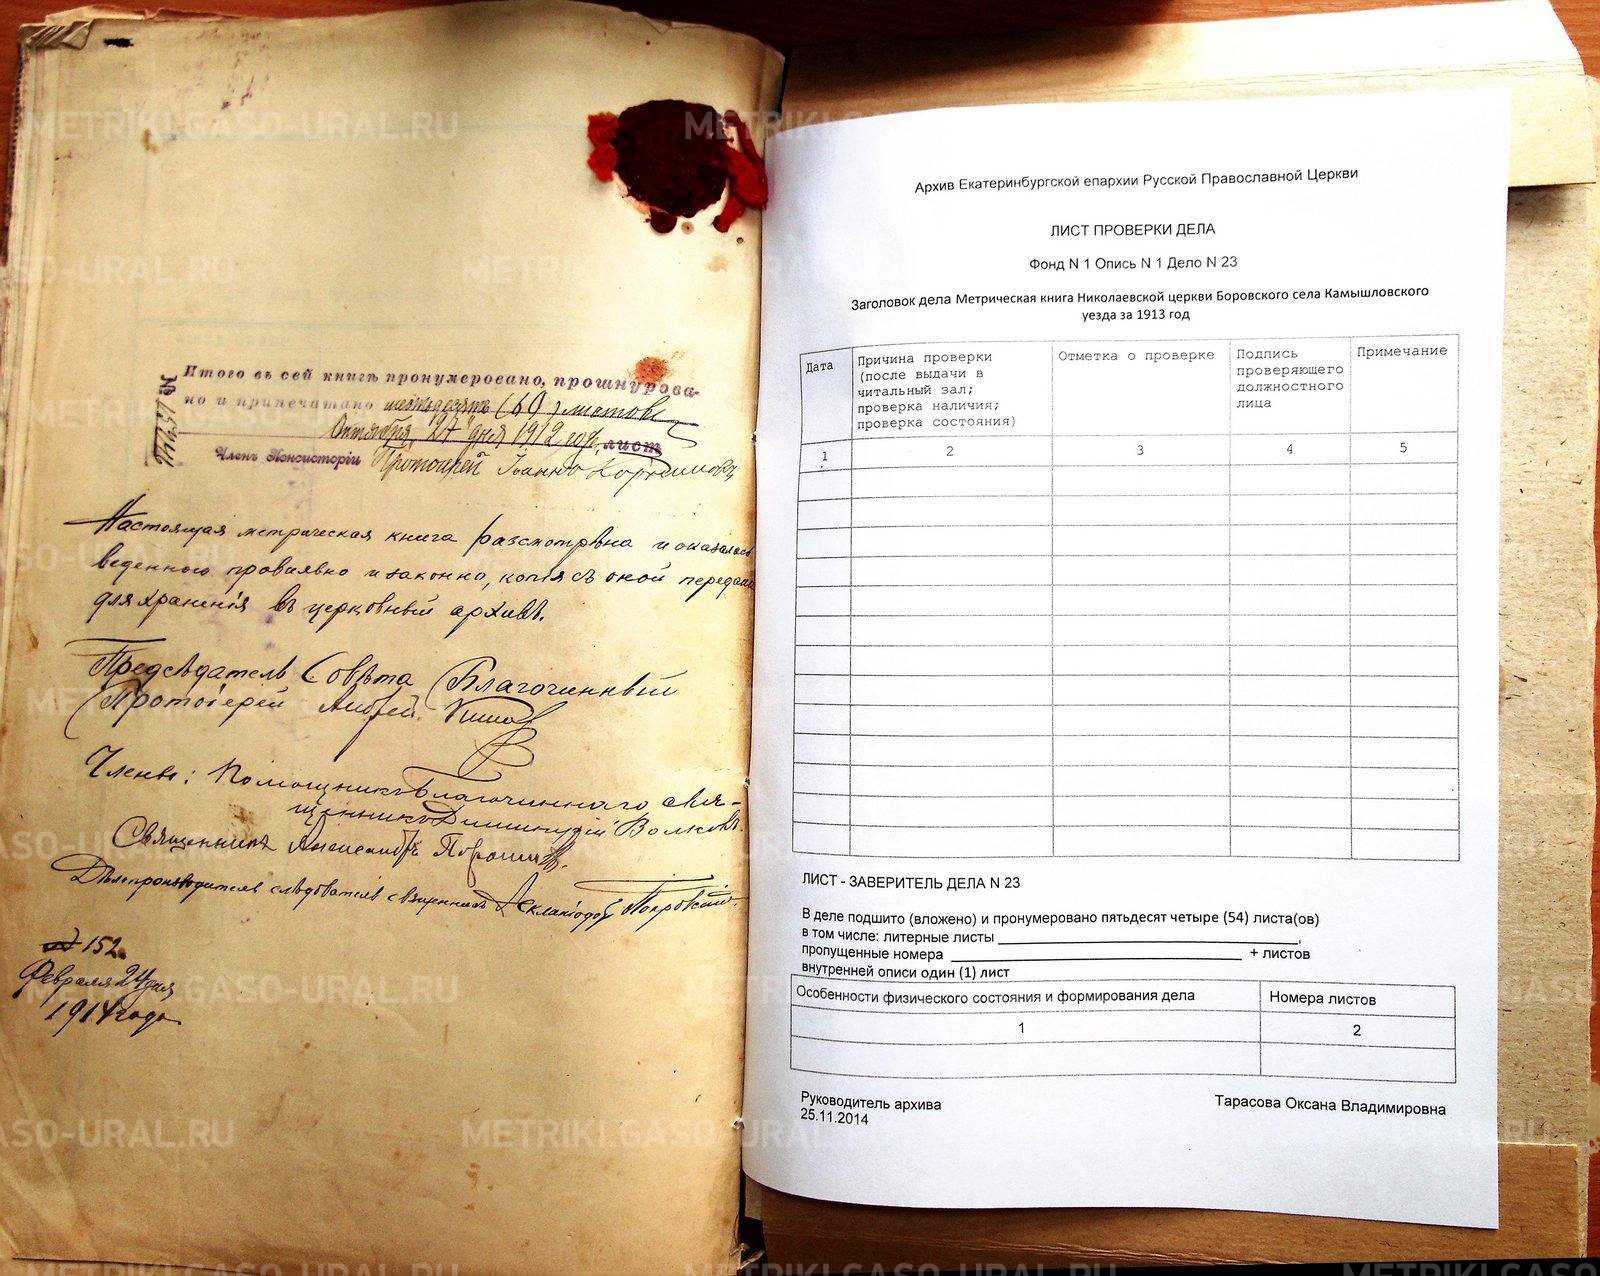 Итого въ сей книгѣ пронумеровано, прошнурова-
но и припечатано шестьдесятъ (60) листовъ
Октября "27" дня 1912 год, листъ
Членъ Консисторіи Протоіерей Іоаннъ
Настоящая метрическая книга разсмотрѣна и оказалась
веденною правильно и законно, копія съ оной передана
для храненія въ церковный архивъ.
Предсѣдатель Совѣта Благочинный
Протоіерей Андрей
Члены: Помощникъ Благочиннаго свя-
щенникъ Димитрій Волковъ.
Священникъ Александръ
Дѣлопроизводитель слѣдователь священникъ Покровскій.
№ 152.
Февраля 24 дня
1914 года
Архив Екатеринбургской епархии Русской Православной Церкви
ЛИСТ ПРОВЕРКИ ДЕЛА
Фонд N 1 Опись N 1 Дело N 23
Заголовок дела Метрическая книга Николаевской церкви Боровского села Камышловского
уезда за 1913 год
Дата Причина проверки (после выдачи в читальный зал; проверка наличия; проверка состояния) Отметка о проверке Подпись проверяющего должностного лица Примечание
1 2 3 4 5
ЛИСТ - ЗАВЕРИТЕЛЬ ДЕЛА N 23
В деле подшито (вложено) и пронумеровано пятьдесят четыре (54) листа(ов)
в том числе: литерные листы ,
пропущенные номера + листов
внутренней описи один (1) лист
Особенности физического состояния и формирования дела Номера листов
1 2
Руководитель архива Тарасова Оксана Владимировна
25.11.2014
METRIKI.GASO-URAL.RU